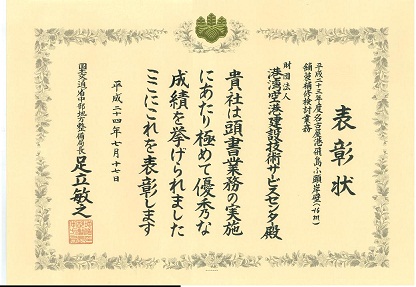 表彰状
平成二十三年度名古屋港飛島ふ頭岸壁
舗装補修検討業務
財団法人
港湾空港建設技術サービスセンター殿
貴社は頭書業務の実施
にあたり極めて優秀な
成績を挙げられました
ここにこれを表彰します
平成二十四年七月十七日
国土交通省中部地方整備局長
足立敏之